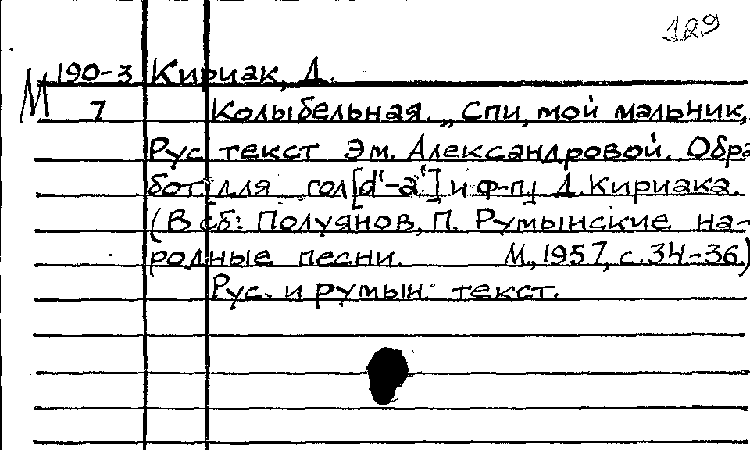 129
М 190-3 Кириак, Д.
7 Колыбельная. „Спи, мой мальчик,
Рус текст Эм. Александровой. Обра
бот для гол[d'-a'] и ф-п, Д. Кириака.
(В сб: Полуянов, П. Румынские на-
родные песни. М., 1957, с. 34-36)
Рус. и румын. текст.